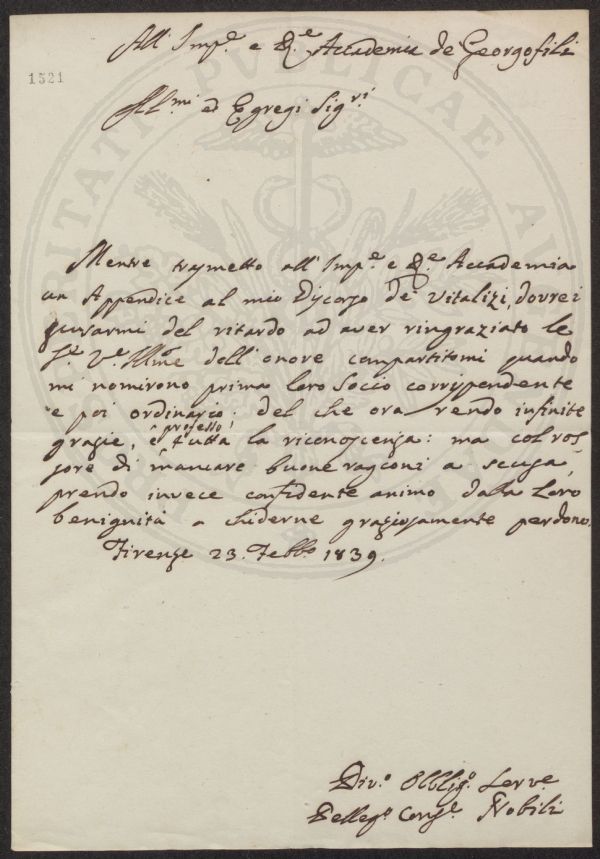 All' Imp.e e R.e Accademia de Georgofili
1321
Ill.mi ed Egregi Sig.ri
Mentre trasmetto all' Imp.e e R.e Accademia
un Appendice al mio Discorso de Vitalizi, dovrei
scusarmi del ritardo ad aver ringraziato le
S.e V.e Ill.me dell' onore compartitomi quando
mi nomirono prima loro Socio corrispendente
e poi ordinario: del che ora rendo infinite
grazie, e professo tutta la riconoscenza: ma col ros
sore di mancare buone ragioni a scusa,
prendo invece confidente animo dalla Loro
benignità a chiderne graziosamente perdono.
Firenze 23. Febb.o 1839.
Div.o Obblig.o Serv.e
Pelleg.o Nobili